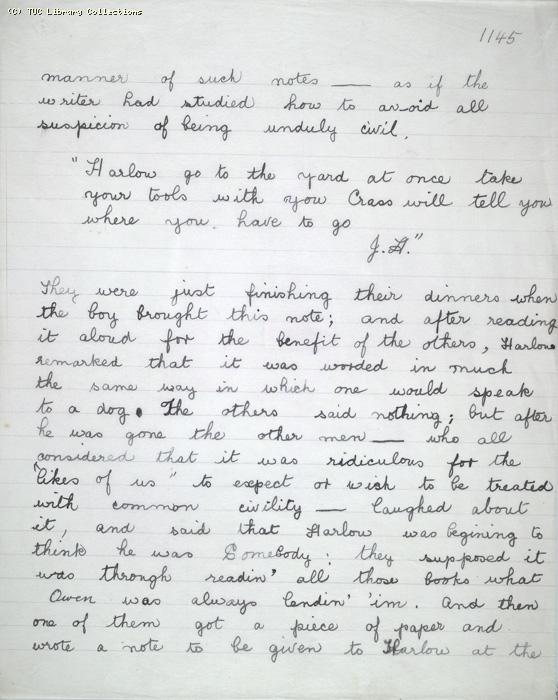 (C) TUC Library Collections
1145
manner of such notes — as if the
writer had studied how to avoid all
suspicion of being unduly civil.
"Harlow go to the yard at once take
your tools with you Crass will tell you
where you. have to go
J.H."
They were just finishing their dinners when
the boy brought this note; and after reading
it aloud for the benefit of the others, Harlow
remarked that it was worded in much
the same way in which one would speak
to a dog. The others said nothing; but after
he was gone the other men — who all
considered that it was ridiculous for the
"likes of us" to expect or wish to be treated
with common civility — laughed about
it, and said that Harlow was begining to
think he was Somebody: they supposed it
was through readin' all those books what
Owen was always lendin' 'im. And then
one of them got a piece of paper and
wrote a note to be given to Harlow at the